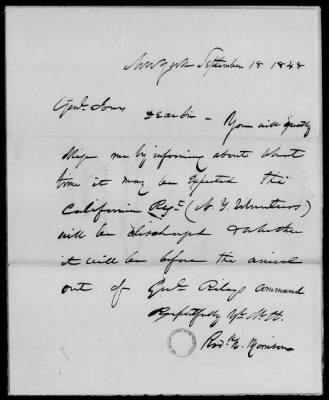 New York September 18 1848
Genl. Jones
Dear Sir - You will greatly
oblige me by informing about what
time it may be expected the
California Regt. (N. Y. Volunteers)
will be discharged & whether
it will be before the arrival
out of Genl. Rileys command
Respectfully Yr.
Rodk. N. Morrison